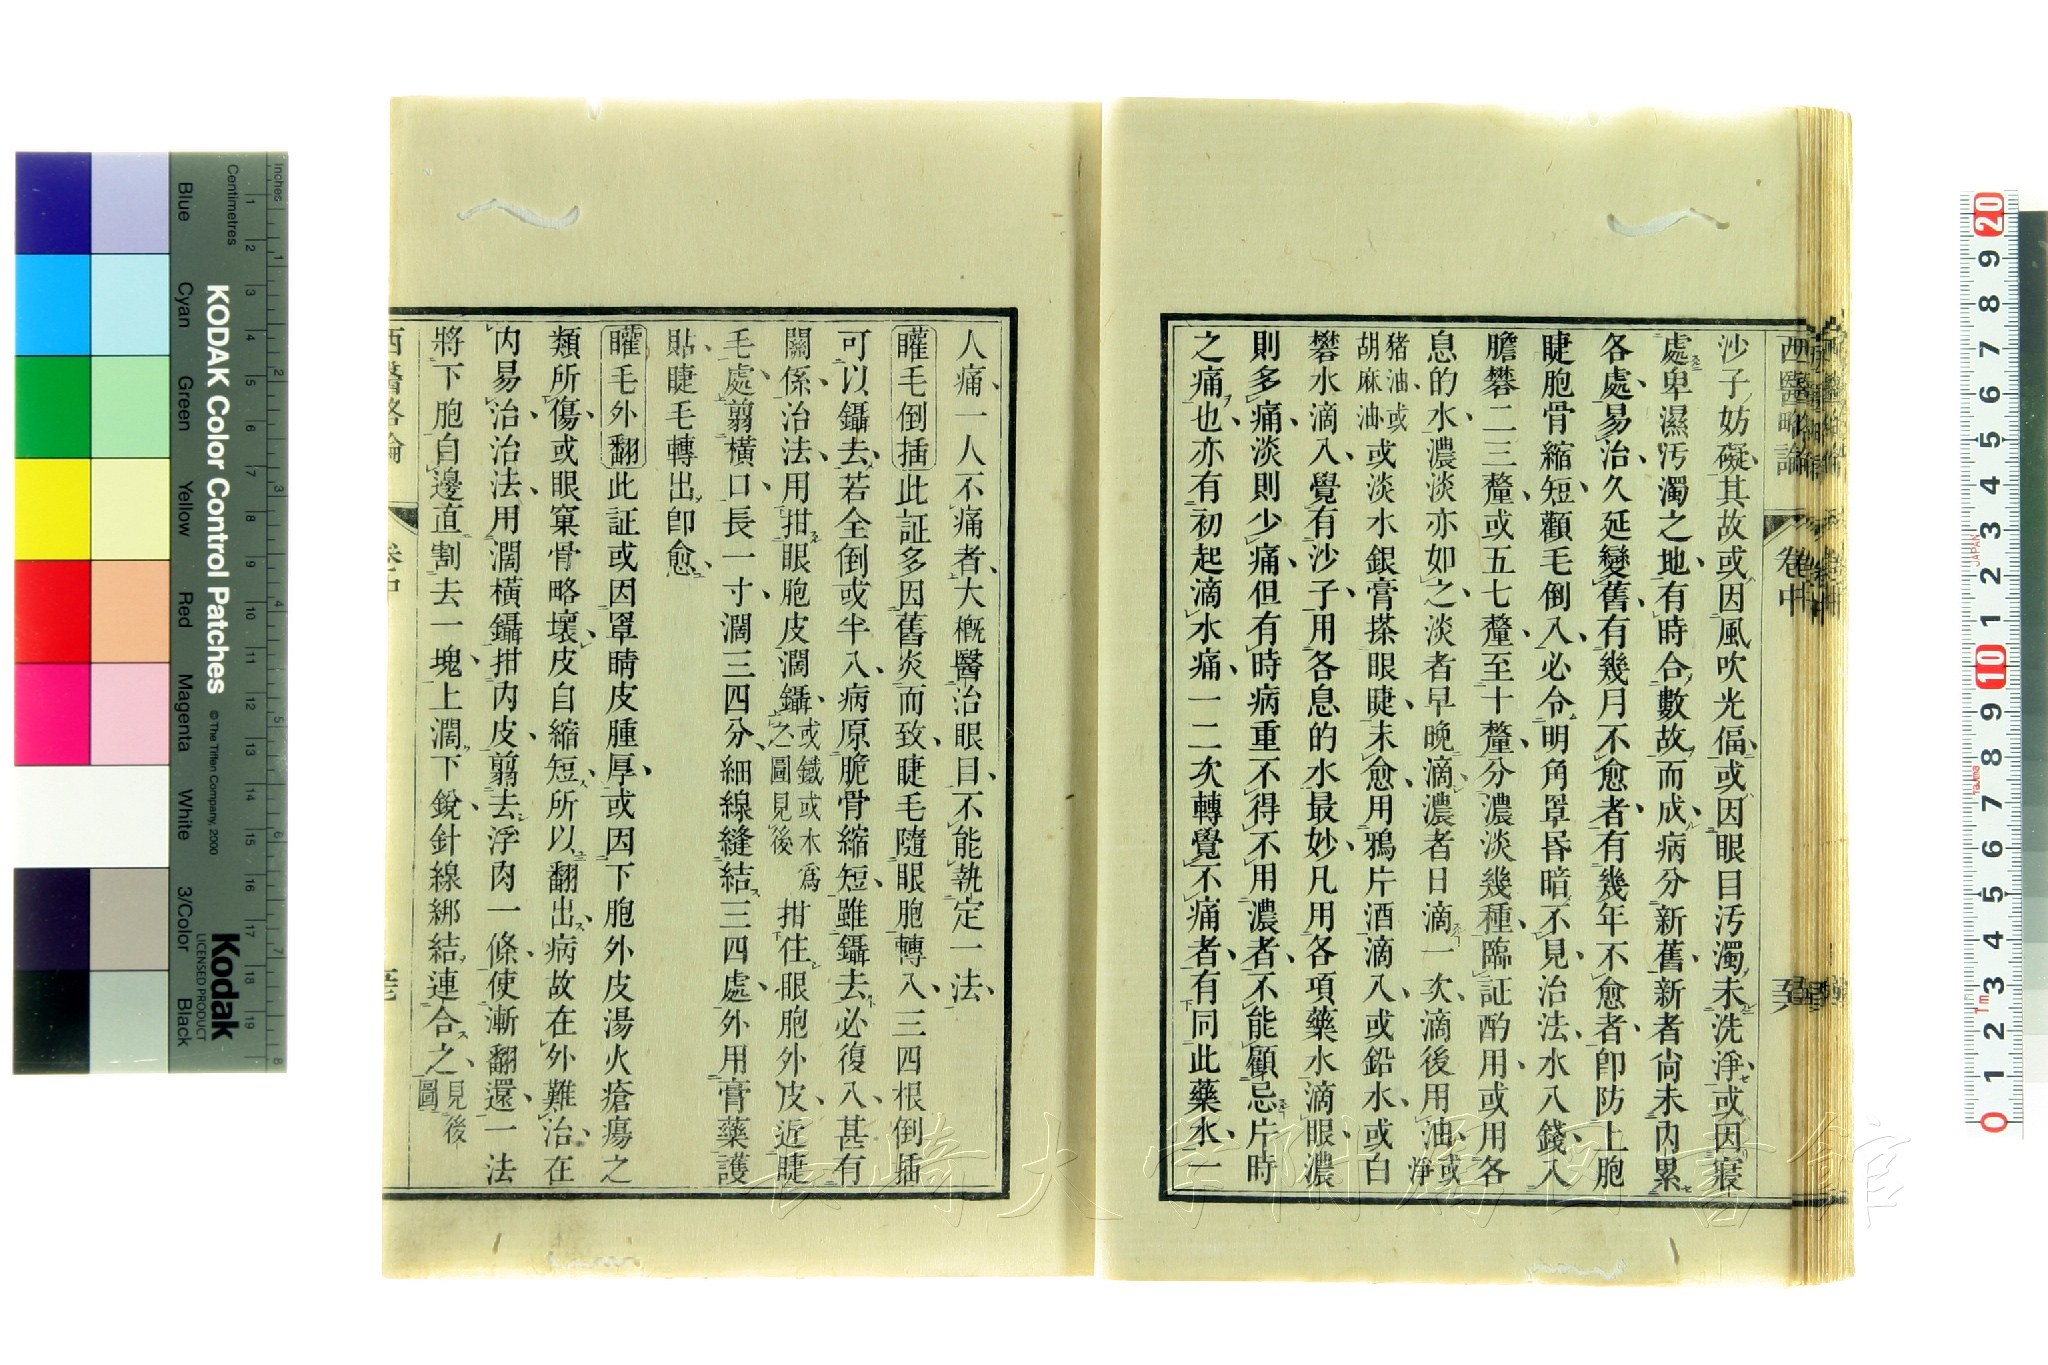 西醫略論 卷中
沙子妨礙其故或因風吹光偪或因眼目汚濁未洗淨或因寢
處卑濕汚濁之地有時合數故而成病分新舊新者尙未內累
各處易治久延變舊有幾月不愈者有幾年不愈者卽防上胞
睫胞骨縮短顴毛倒入必令明角罩昏暗不見治法水八錢入
膽礬二三釐或五七釐至十釐分濃淡幾種臨証酌用或用各
息的水濃淡亦如之淡者早晚滴濃者日滴一次滴後用油或淨
猪油或胡麻油或淡水銀膏搽眼睫未愈用鴉片酒滴入或鉛水或白
礬水滴入覺有沙子用各息的水最妙凡用各項藥水滴眼濃
則多痛淡則少痛但有時病重不得不用濃者不能顧忌片時
之痛也亦有初起滴水痛一二次轉覺不痛者有同此藥水一
人痛一人不痛者大概醫治眼目不能執定一法
䂄毛倒插此証多因舊炎而致睫毛隨眼胞轉入三四根倒插
可以鑷去若全倒或半入病原脆骨縮短雖鑷去必復入甚有
關係治法用拑眼胞皮濶鑷或鐵或木爲之圖見後拑住眼胞外皮近睫
毛處翦橫口長一寸濶三四分細線縫結三四處外用膏藥護
貼睫毛轉出卽愈
䂄毛外翻此証或因罩睛皮腫厚或因下胞外皮湯火瘡瘍之
類所傷或眼窠骨略壞皮自縮短所以翻出病故在外難治在
內易治治法用濶橫鑷拑內皮翦去浮肉一條使漸翻還一法
將下胞自邊直割去一塊上濶下銳針線綁結連合之見後圖
西醫略論 卷中
KODAK Color Control Patches
© The Tiffen Company, 2000
Kodak
LICENSED PRODUCT
Inches
Centimetres
Blue
Cyan
Green
Yellow
Red
Magenta
White
3/Color
Black
長崎大学附属図書館
JAPAN